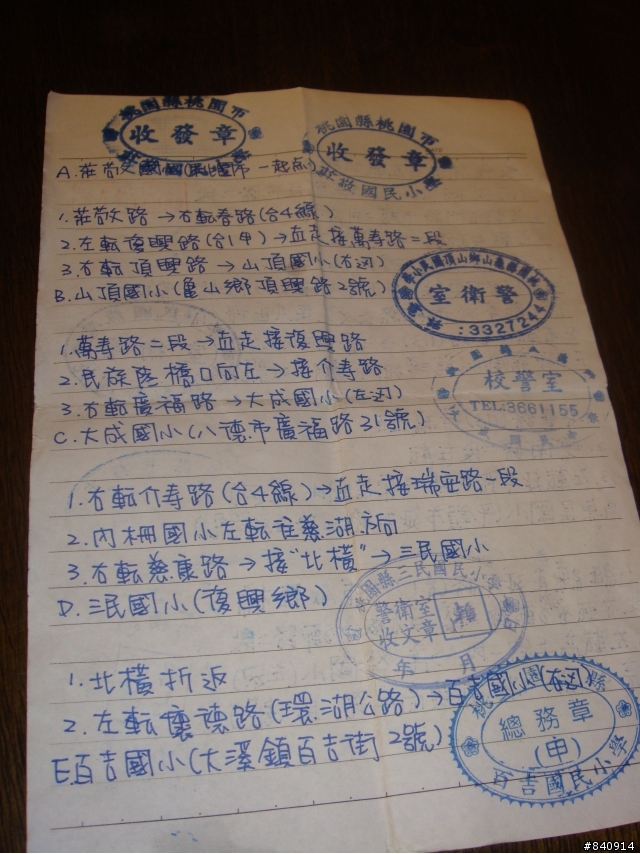 桃園縣桃園市
收發章
桃園縣桃園市
收發章
莊敬國民小學
A.莊敬國小(桃園市 一起点)
1.莊敬路→右転春路(台4線)
2.左転復興路(台1甲)→直走接萬壽路二段
3.右転頂興路→山頂國小(右边)
B.山頂國小(龜山鄉頂興路2號)
警衛室
:3327244
1.萬壽路二段→直走接復興路
2.民族陸橋口向左→接介寿路
3.右転廣福路→大成國小(左边)
校警室
TEL:3661155
C.大成國小(八德市廣福路31號)
1.右転介寿路(台4線)→直走接瑞安路一段
2.內柵國小左転往慈湖方向
3.右転慈康路→接"北橫"→三民國小
D.三民國小(復興鄉)
桃園縣三民國民小學
警衛室
收文章
年 月 日
1.北橫折返
2.左転懷德路(環湖公路)→百吉國小(右边)
E.百吉國小(大溪鎮百吉街2號)
桃園縣
總務章
(甲)
百吉國民小學
#840914